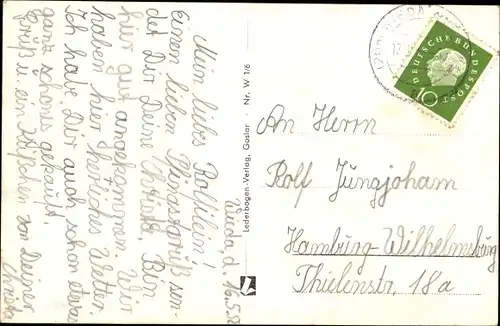 Wieda, d. 16.5.59
Mein liebes Rolfilein!
Einen lieben Pfingstgruß sen-
det Dir Deine Christa. Bin
hier gut angekommen. Wir
haben hier herrliches Wetter.
Ich habe Dir auch schon etwas
ganz schönes gekauft.
Gruß u. ein Küßchen von Deiner
Christa
Lederbogen-Verlag, Goslar · Nr. W 1/6
DEUTSCHE BUNDESPOST
10
An Herrn
Rolf Jungjoham
Hamburg-Wilhelmsburg
Thielenstr. 18a